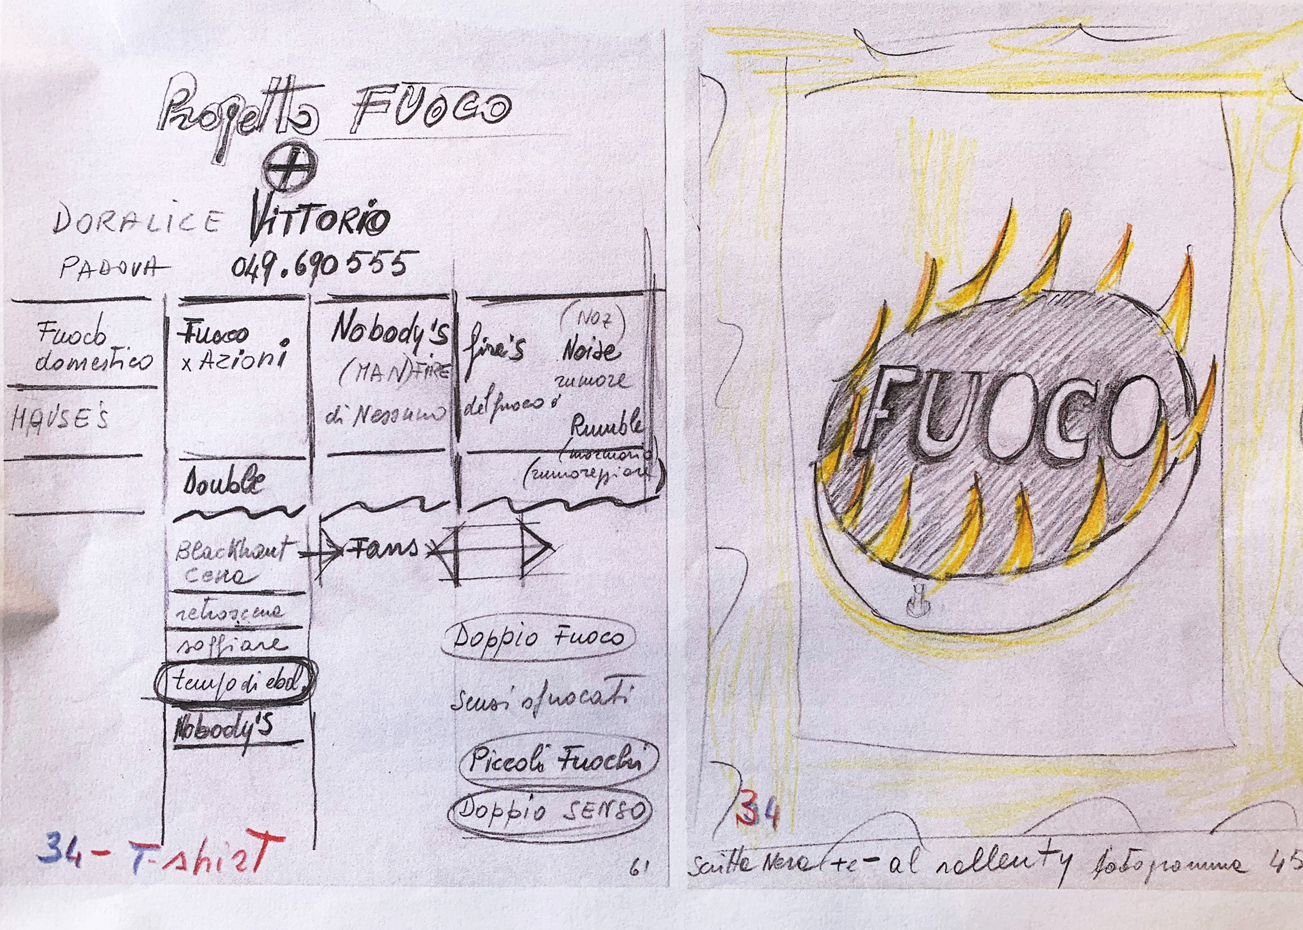 Progetto FUOCO
DORALICE VITTORIO
PADOVA 049.690555
Fuoco
domestico
HAUSE'S
Fuoco
x Azioni
Double
Nobody's
(MAN) FIRE
di Nessuno
fire's
del fuoco
(Noz)
Noise
rumore
Rumble
(mormorio
(rumoreggiare)
Fans
cena
retroscena
soffiare
tempo di ebol.
Nobody's
Doppio Fuoco
Sensi sfuocati
Piccoli Fuochi
Doppio SENSO
34- T-shirt
61
FUOCO
34
Scritta Nera +e- al rallenty fotogramma 45